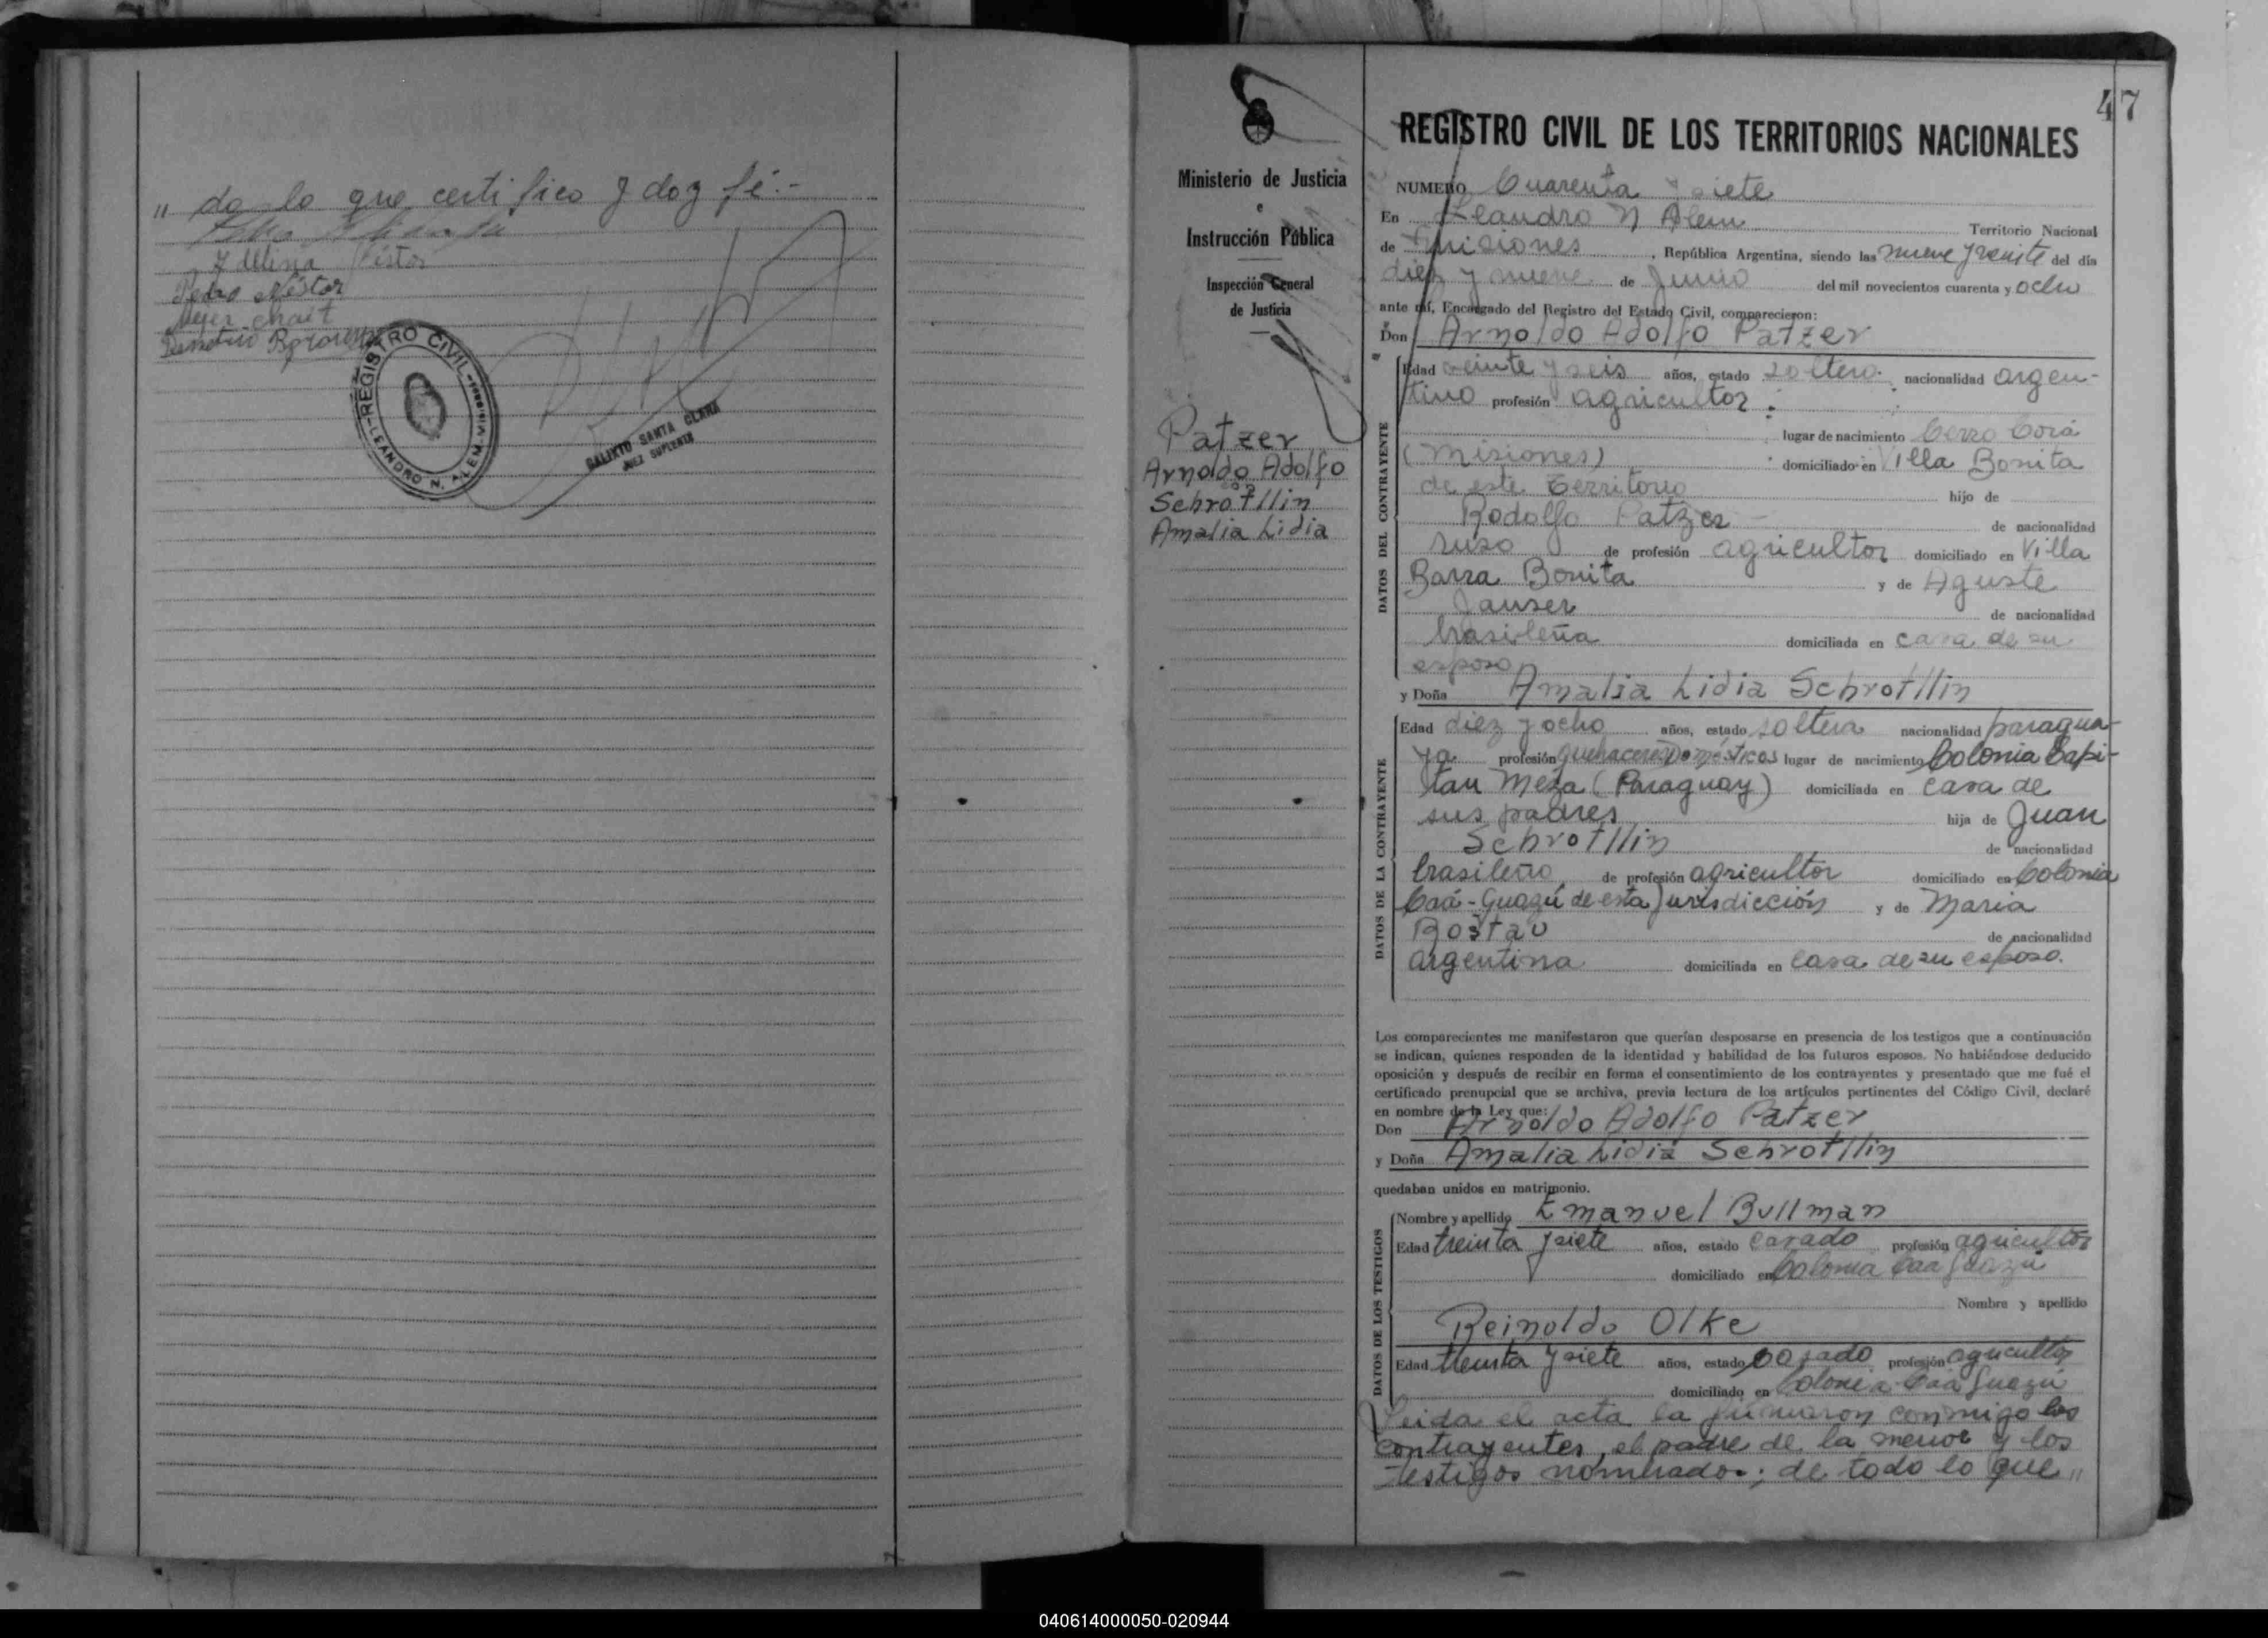 " do lo que certifico y doy fé.-
Pedro Néstor
REGISTRO CIVIL
LEANDRO N. ALEM
CALIXTO SANTA CLARA
JUEZ SUPLENTE
Ministerio de Justicia
e
Instrucción Pública
Inspección General
de Justicia
Patzer
Arnoldo Adolfo
con
Schrotllin
Amalia Lidia
47
REGISTRO CIVIL DE LOS TERRITORIOS NACIONALES
NUMERO Cuarenta y siete
En Leandro N Alem Territorio Nacional
de Misiones, República Argentina, siendo las nueve y veinte del día
diez y nueve de Junio del mil novecientos cuarenta y ocho
ante mí, Encargado del Registro del Estado Civil, comparecieron:
Don Arnoldo Adolfo Patzer
DATOS DEL CONTRAYENTE
Edad veinte y seis años, estado soltero nacionalidad argen-
tino profesión agricultor
lugar de nacimiento Cerro Corá
(Misiones) domiciliado en Villa Bonita
de este Territorio hijo de
Rodolfo Patzer de nacionalidad
ruso de profesión agricultor domiciliado en Villa
Barra Bonita y de Aguste
Janser de nacionalidad
brasileña domiciliada en casa de su
esposo
y Doña Amalia Lidia Schrotllin
DATOS DE LA CONTRAYENTE
Edad diez y ocho años, estado soltera nacionalidad paragua-
ya profesión quehaceres domésticos lugar de nacimiento Colonia Capi-
tan Meza (Paraguay) domiciliada en casa de
sus padres hija de Juan
Schrotllin de nacionalidad
brasileño de profesión agricultor domiciliado en Colonia
Caá-Guazú de esta Jurisdicción y de Maria
Rostau de nacionalidad
argentina domiciliada en casa de su esposo.
Los comparecientes me manifestaron que querían desposarse en presencia de los testigos que a continuación
se indican, quienes responden de la identidad y habilidad de los futuros esposos. No habiéndose deducido
oposición y después de recibir en forma el consentimiento de los contrayentes y presentado que me fué el
certificado prenupcial que se archiva, previa lectura de los artículos pertinentes del Código Civil, declaré
en nombre de la Ley que:
Don Arnoldo Adolfo Patzer
y Doña Amalia Lidia Schrotllin
quedaban unidos en matrimonio.
DATOS DE LOS TESTIGOS
Nombre y apellido Emanuel Bullman
Edad treinta y siete años, estado casado profesión agricultor
domiciliado en Colonia Caá Guazú
Nombre y apellido
Reinoldo Olke
Edad treinta y siete años, estado casado profesión agricultor
domiciliado en Colonia Caá Guazú
Leida el acta la firmaron conmigo los
contrayentes, el padre de la menor y los
testigos nombrados; de todo lo que "
040614000050-020944